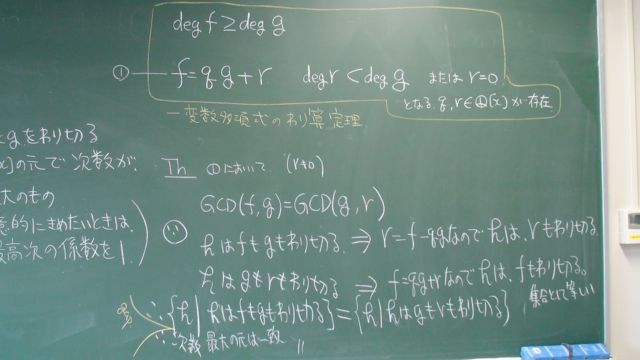 deg f ≥ deg g
① f = qg + r  deg r < deg g または r = 0
となる q, r ∈ Q[x] が存在
一変数多項式のわり算定理
gをわり切る
[x]の元で次数が、
大のもの
意的にきめたいときは、
最高次の係数を1.
Th ①において、(r≠0)
GCD(f, g) = GCD(g, r)
hはfもgもわり切る ⇒ r = f - qg なので hは、rもわり切る
hはgもrもわり切る ⇒ f = qg + r なので hは、fもわり切る。
∴ {h | hはfもgもわり切る} = {h | hはgもrもわり切る} 集合として等しい
∴ 次数最大の元は一致 〃